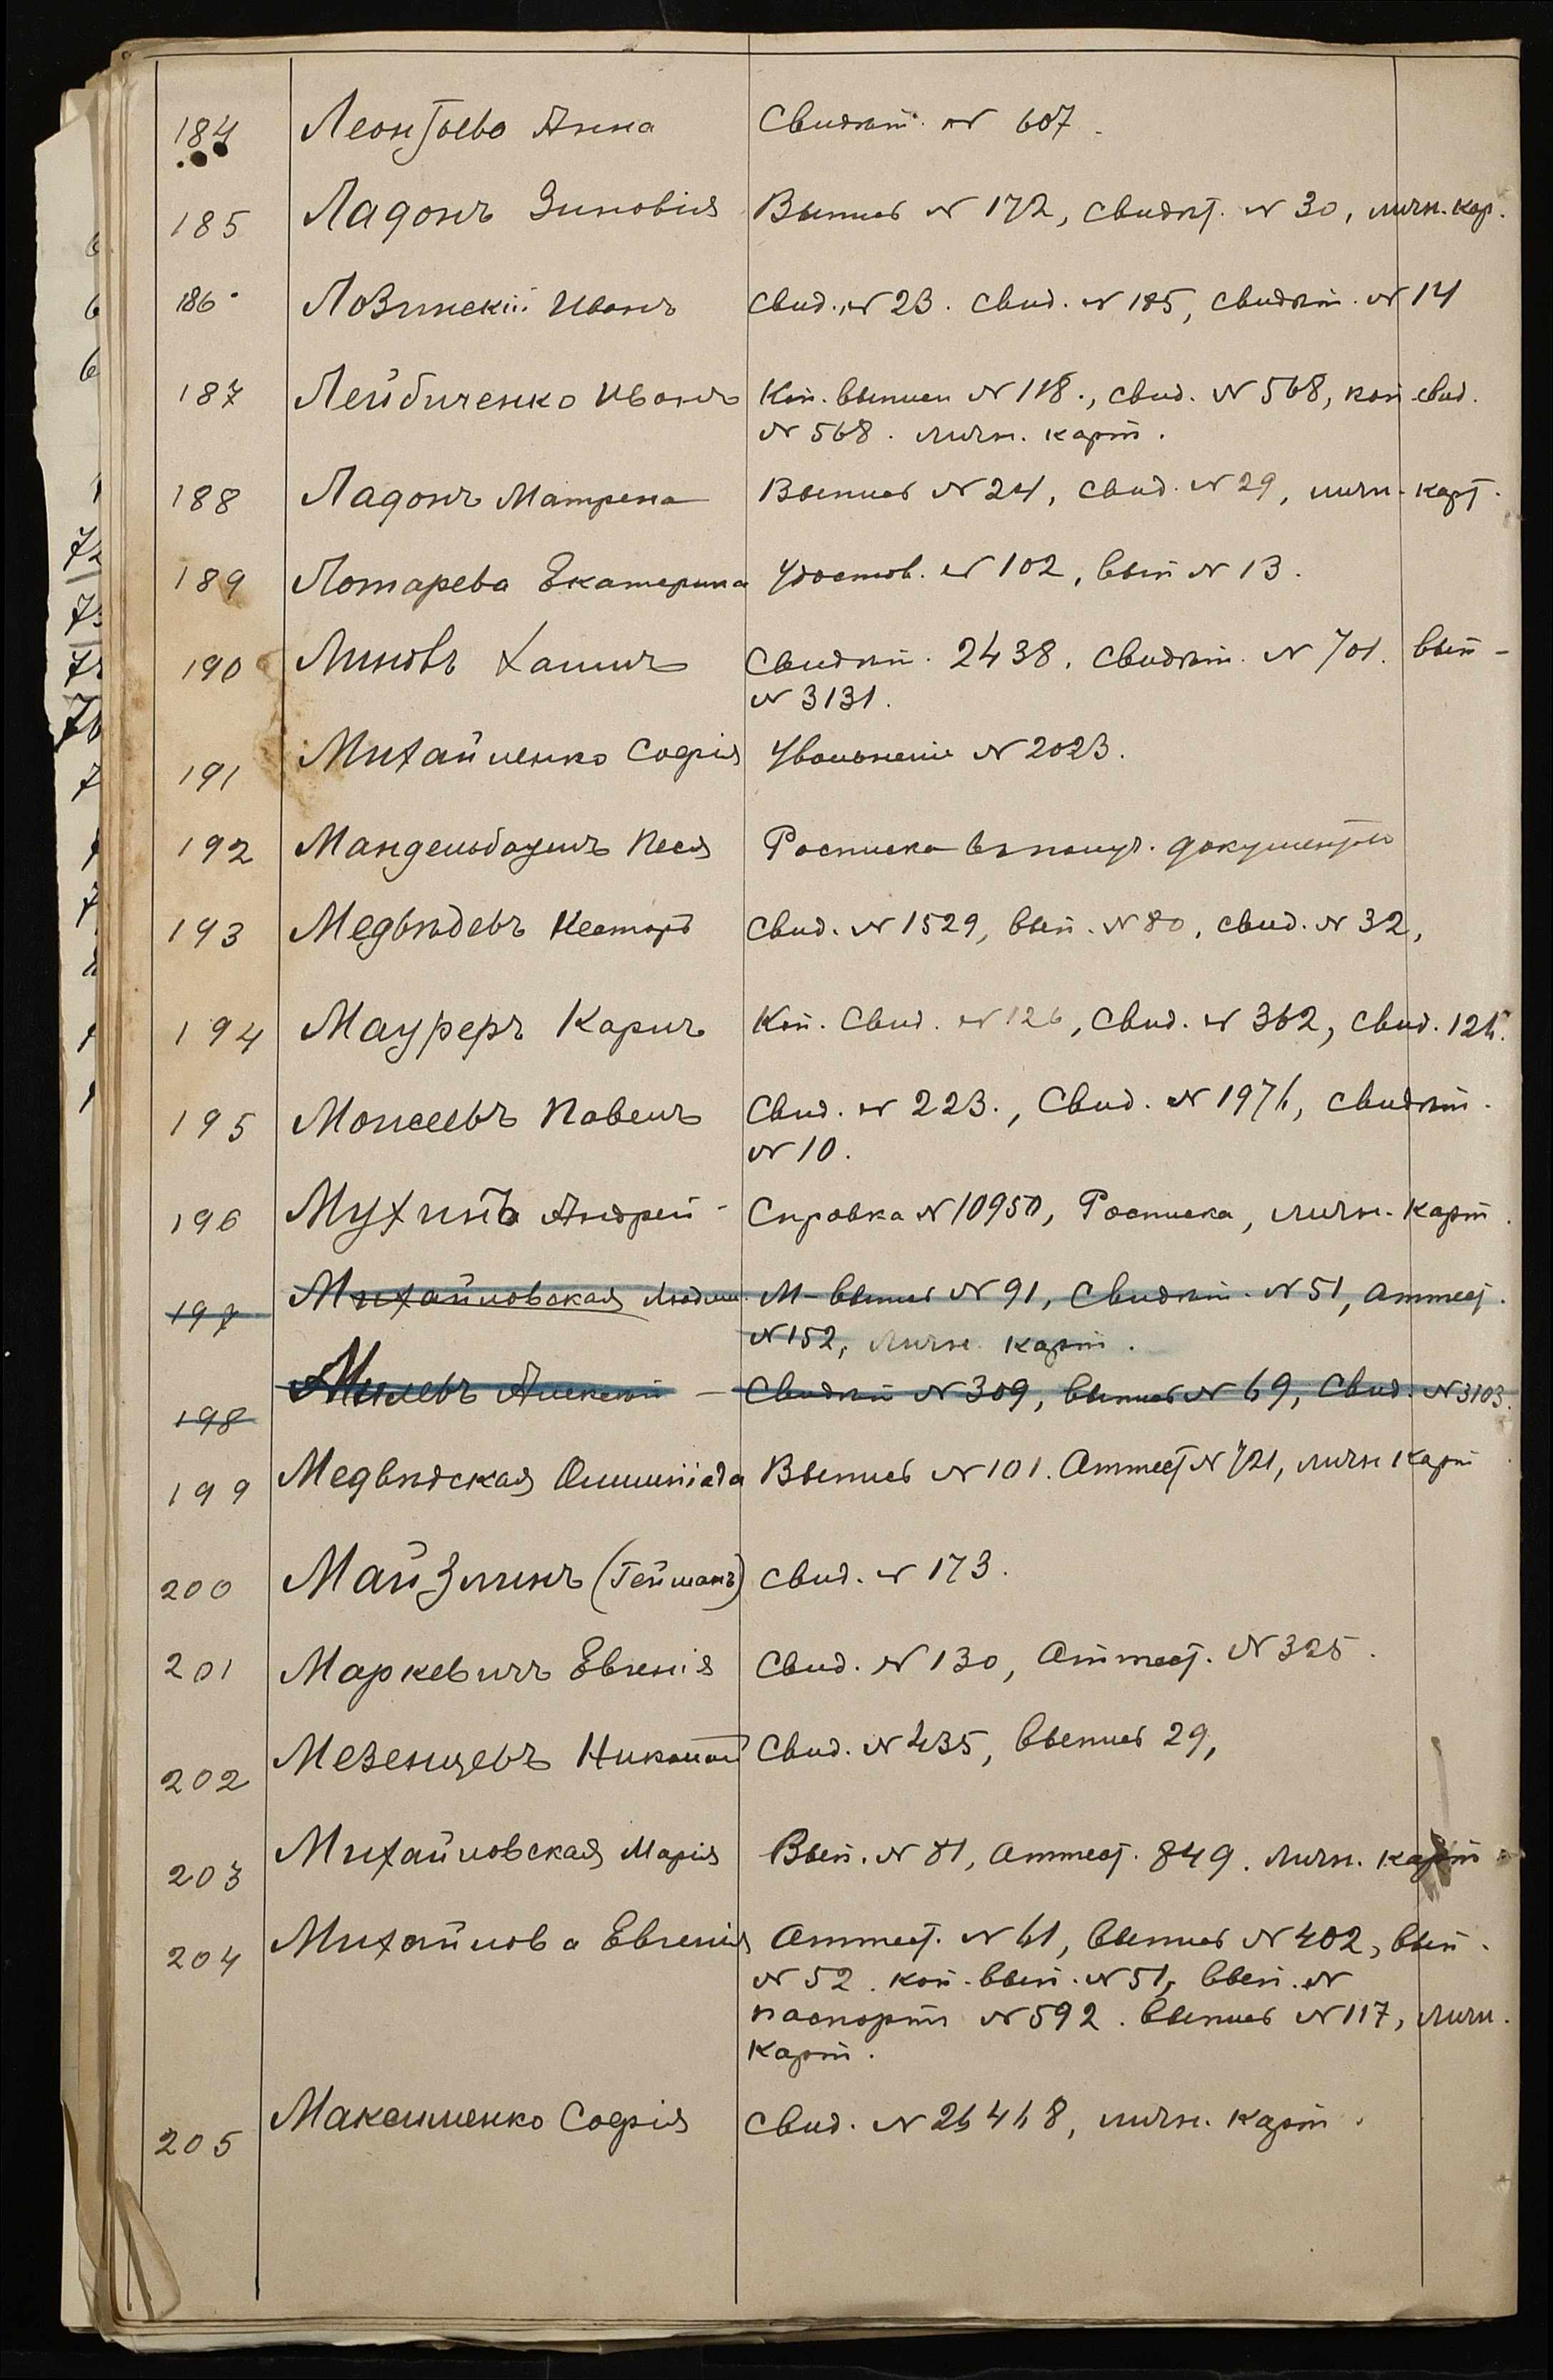 184 Леонтьева Анна Свидѣт. № 607.
185 Ладонъ Зиновія Выпись № 172, свидѣт. № 30, личн. кар.
186 Лозинскій Иванъ Свид. № 23. Свид. № 185, свидѣт. № 14
187 Лейбиченко Иванъ Коп. выписи № 118., свид. № 568, коп. свид.
№ 568. личн. карт.
188 Ладонъ Матрена Выпись № 24, свид. № 29, личн. карт.
189 Лотарева Екатерина Удостов. № 102, вып № 13.
190 Линовъ Хаимъ Свидѣт. 2438. Свидѣт. № 701. вып-
№ 3131.
191 Михайленко Софія Увольненіе № 2023.
192 Мандельбаумъ Песя Росписка въ получ. документовъ
193 Медвѣдевъ Несторъ Свид. № 1529, вып. № 80, свид. № 32,
194 Мауреръ Карлъ Коп. Свид. № 126, Свид. № 362, Свид. 126.
195 Моисеевъ Павелъ Свид. № 223., Свид. № 1976, свидѣт.
№ 10.
196 Мухинъ Андрей - Справка № 10950, Росписка, личн. карт.
197 Михайловская Людмил. М- выпись № 91, Свидѣт. № 51, аттест.
№ 152, личн. карт.
198 Милевъ Алексѣй - Свидѣт № 309, выпись № 69, Свид. № 3103.
199 Медвѣдская Олимпіада Выпись № 101. Аттест № 721, личн карт
200 Майзлинъ (Гейманъ) Свид. № 173.
201 Маркевичъ Евгенія Свид. № 130, Аттест. № 325.
202 Мезенцевъ Николай Свид. № 435, выпись 29,
203 Михайловская Марія Вып. № 81, аттест. 849. личн. карт
204 Михайлова Евгенія Аттест. № 61, выпись № 402, вып.
№ 52. коп. вып. № 51, вып. №
паспортъ № 592. выпись № 117, личн.
карт.
205 Максименко Софія Свид. № 26468, личн. карт.